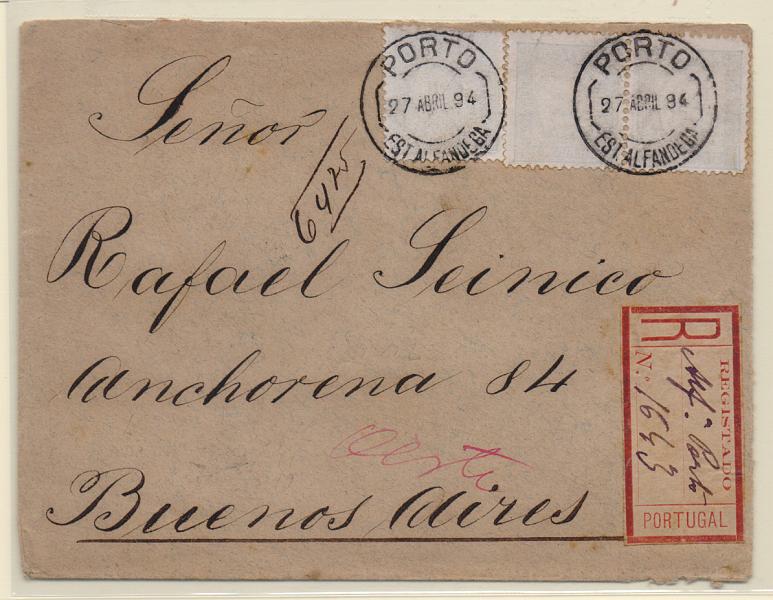 PORTO
27 ABRIL 94
EST. ALFANDEGA
PORTO
27 ABRIL 94
EST. ALFANDEGA
Señor
6425
Rafael Seinico
Anchorena 84
Oeste
Buenos Aires
R
REGISTADO
Alf.ª Porto
N.: 1643
PORTUGAL